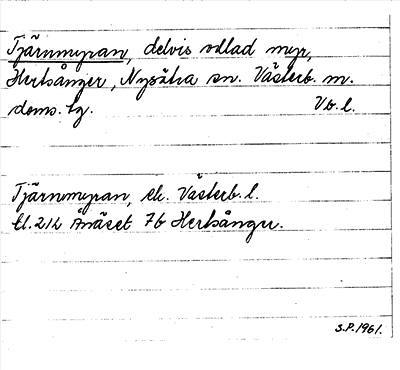 Tjärnmyran, delvis odlad myr,
Hertsånger, Nysätra sn. Västerb. m.
doms. tg. Vb. l.
Tjärnmyran, ek. Västerb. l.
bl. 212 Ånäset 7b Hertsånger.
S.P. 1961.